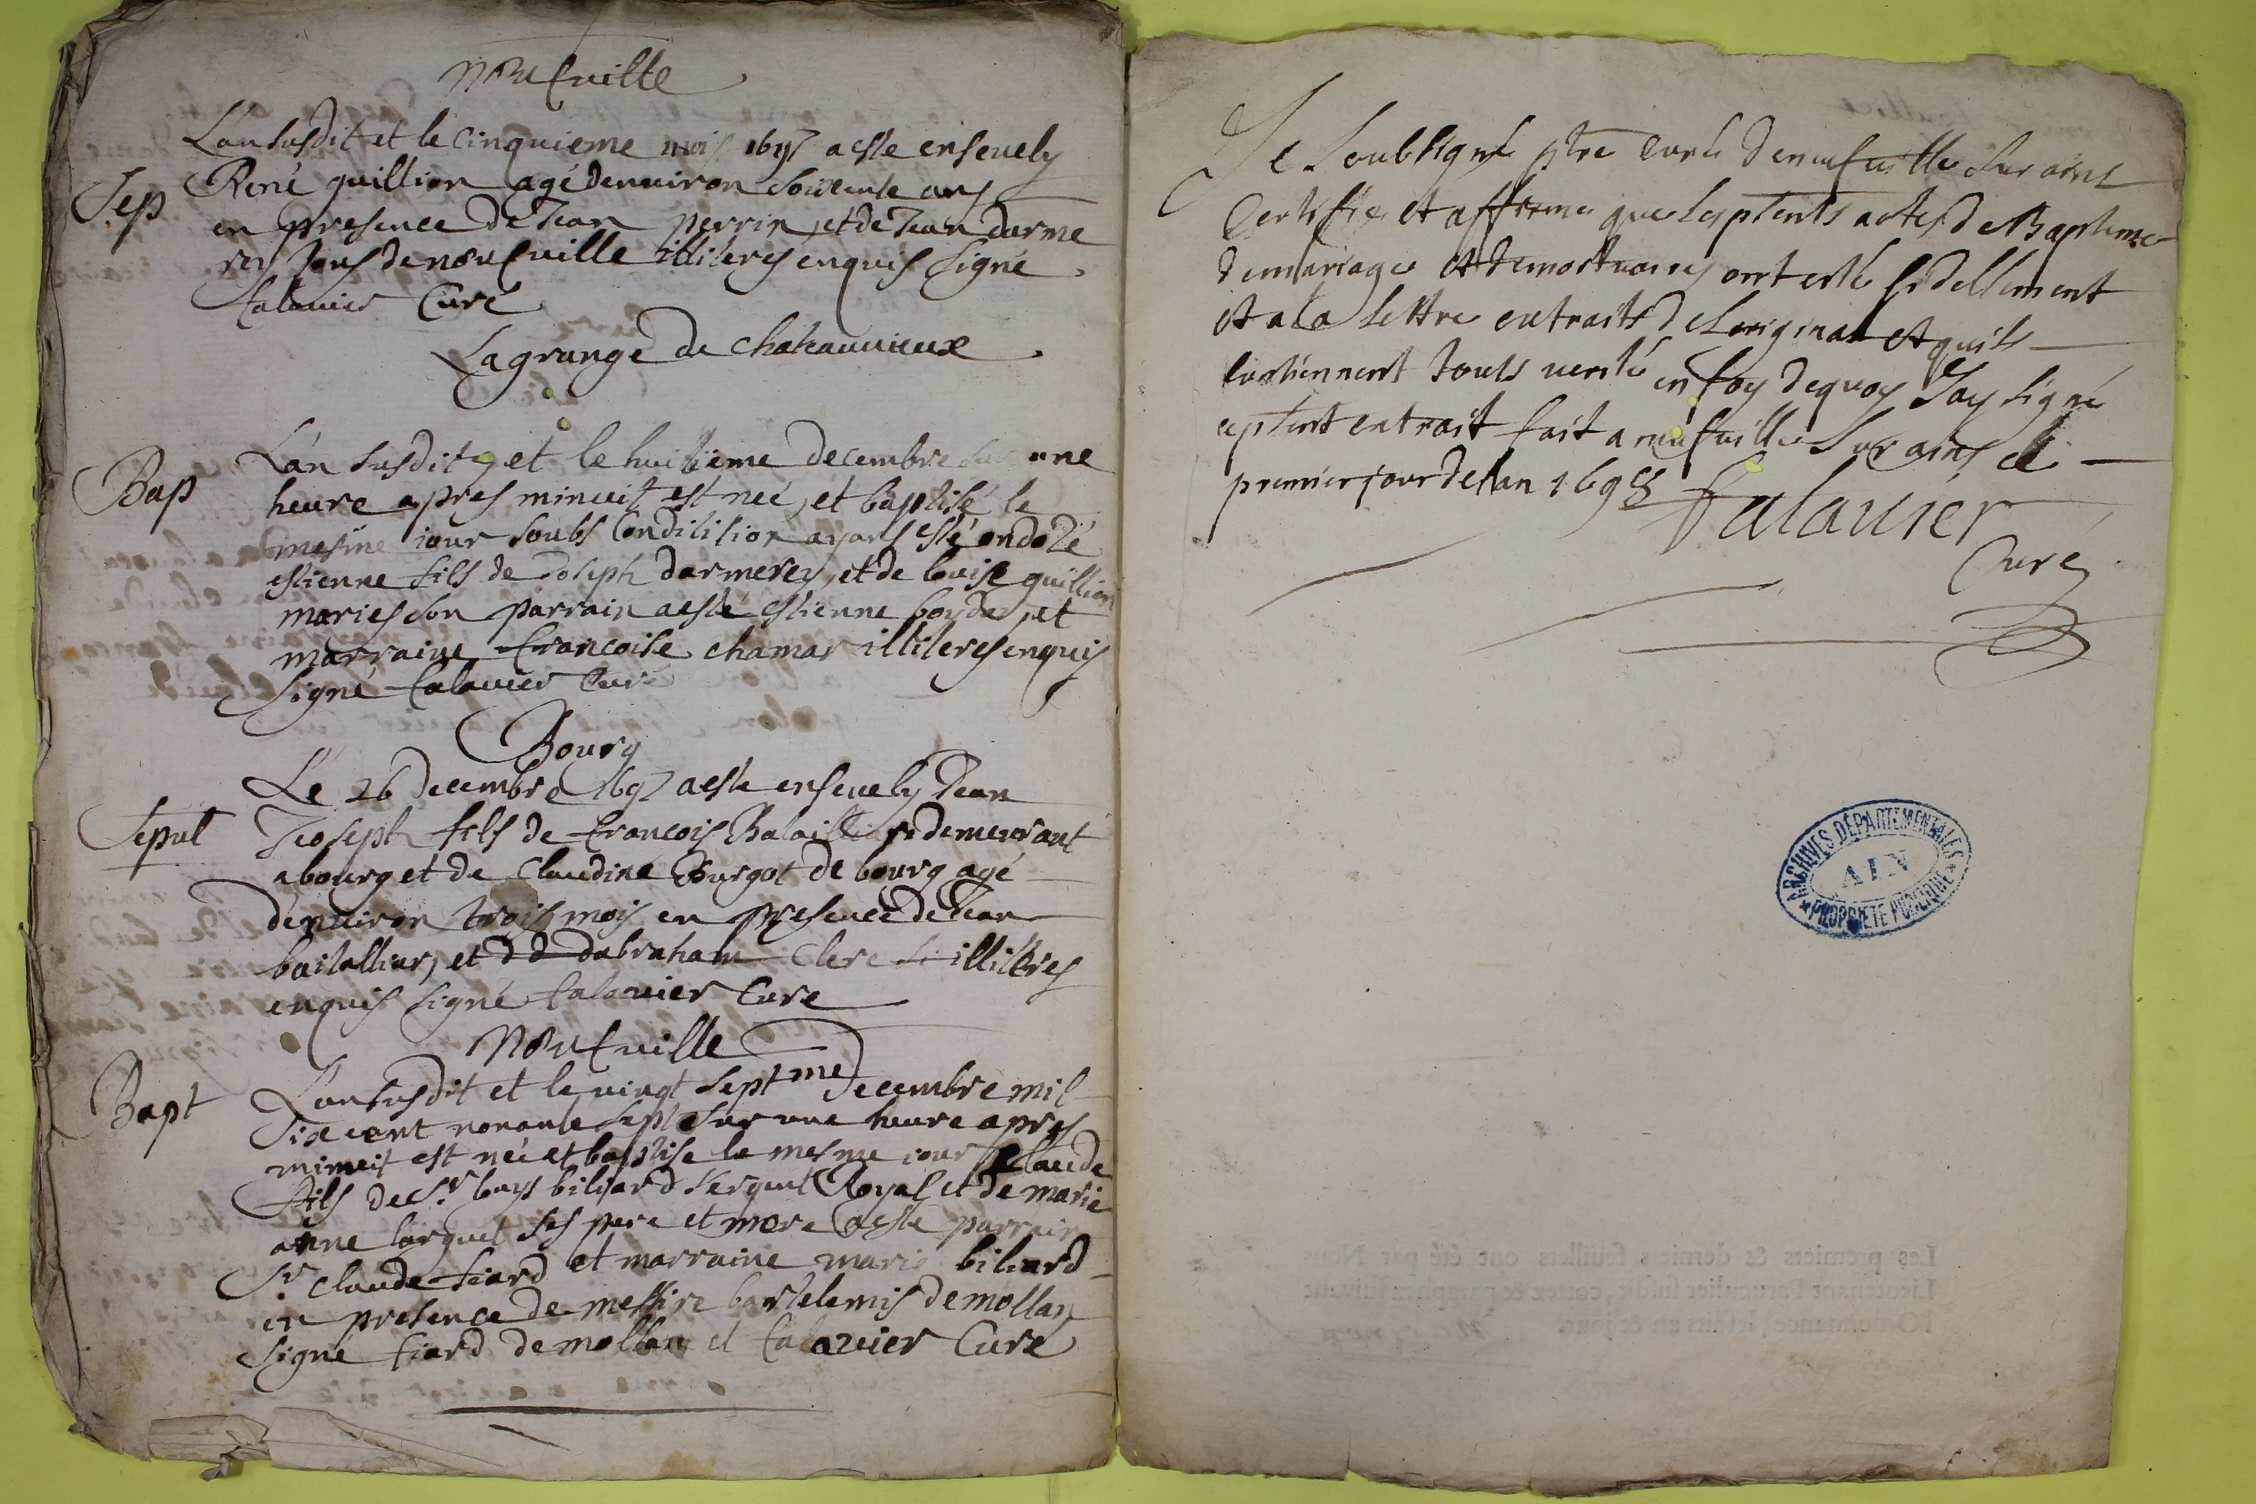 Noufville
L'an susdit et le cinquieme mois 1697 a este ensevely
Sep
René guillion agé denuiron soixante ans
en presence de Jean perrin, et de Jean darme
rey tous de noufville illiteres enquis signé
falavier Curé
La grange de chateauvieux
Bap
L'an susdit, et le huitieme decembre sur une
heure apres minuit est né, et baptisé le
mesme iour soubs Conditition ayant esté ondoié
estienne fils de Joseph darmerey, et de louise guillion
maries son parrain a esté estienne et
marraine francoise chamar illiteres enquis
signé falavier Curé
Bourg
Le 26 decembre 1697 a este ensevely Jean
Sepul
Joseph fils de francois demeurant
a bourg et de Claudine de bourg agé
denuiron trois mois en presence de Jean
et dabraham Clerc illiteres
enquis signé falavier Cure
Noufville
Bapt
L'an susdit et le vingt septme decembre mil
six cent nonante sept sur une heure apres
minuit est né et baptise le mesme iour Claude
fils de Sr. louys biliard sergent Royal et de marie
anne ses pere et mere a este parrain
Sr. Claude fiard et marraine marie biliard
en presence de messire bartelemis de mollan
signé fiard de mollan et falavier Curé
Je soubsigné ptre Curé de neufville sur ains
Certifie et affirme que les pñts actes de Baptesme
de mariage et de mortuaires ont esté fidellement
et a la lettre extraits de l'original et quils
contiennent touts verité en foy dequoy Jay signé
le pñt extrait fait a neufville sur ains le
premier jour de l'an 1698
falavier
Curé
ARCHIVES DÉPARTEMENTALES
AIN
PROPRIÉTÉ PUBLIQUE